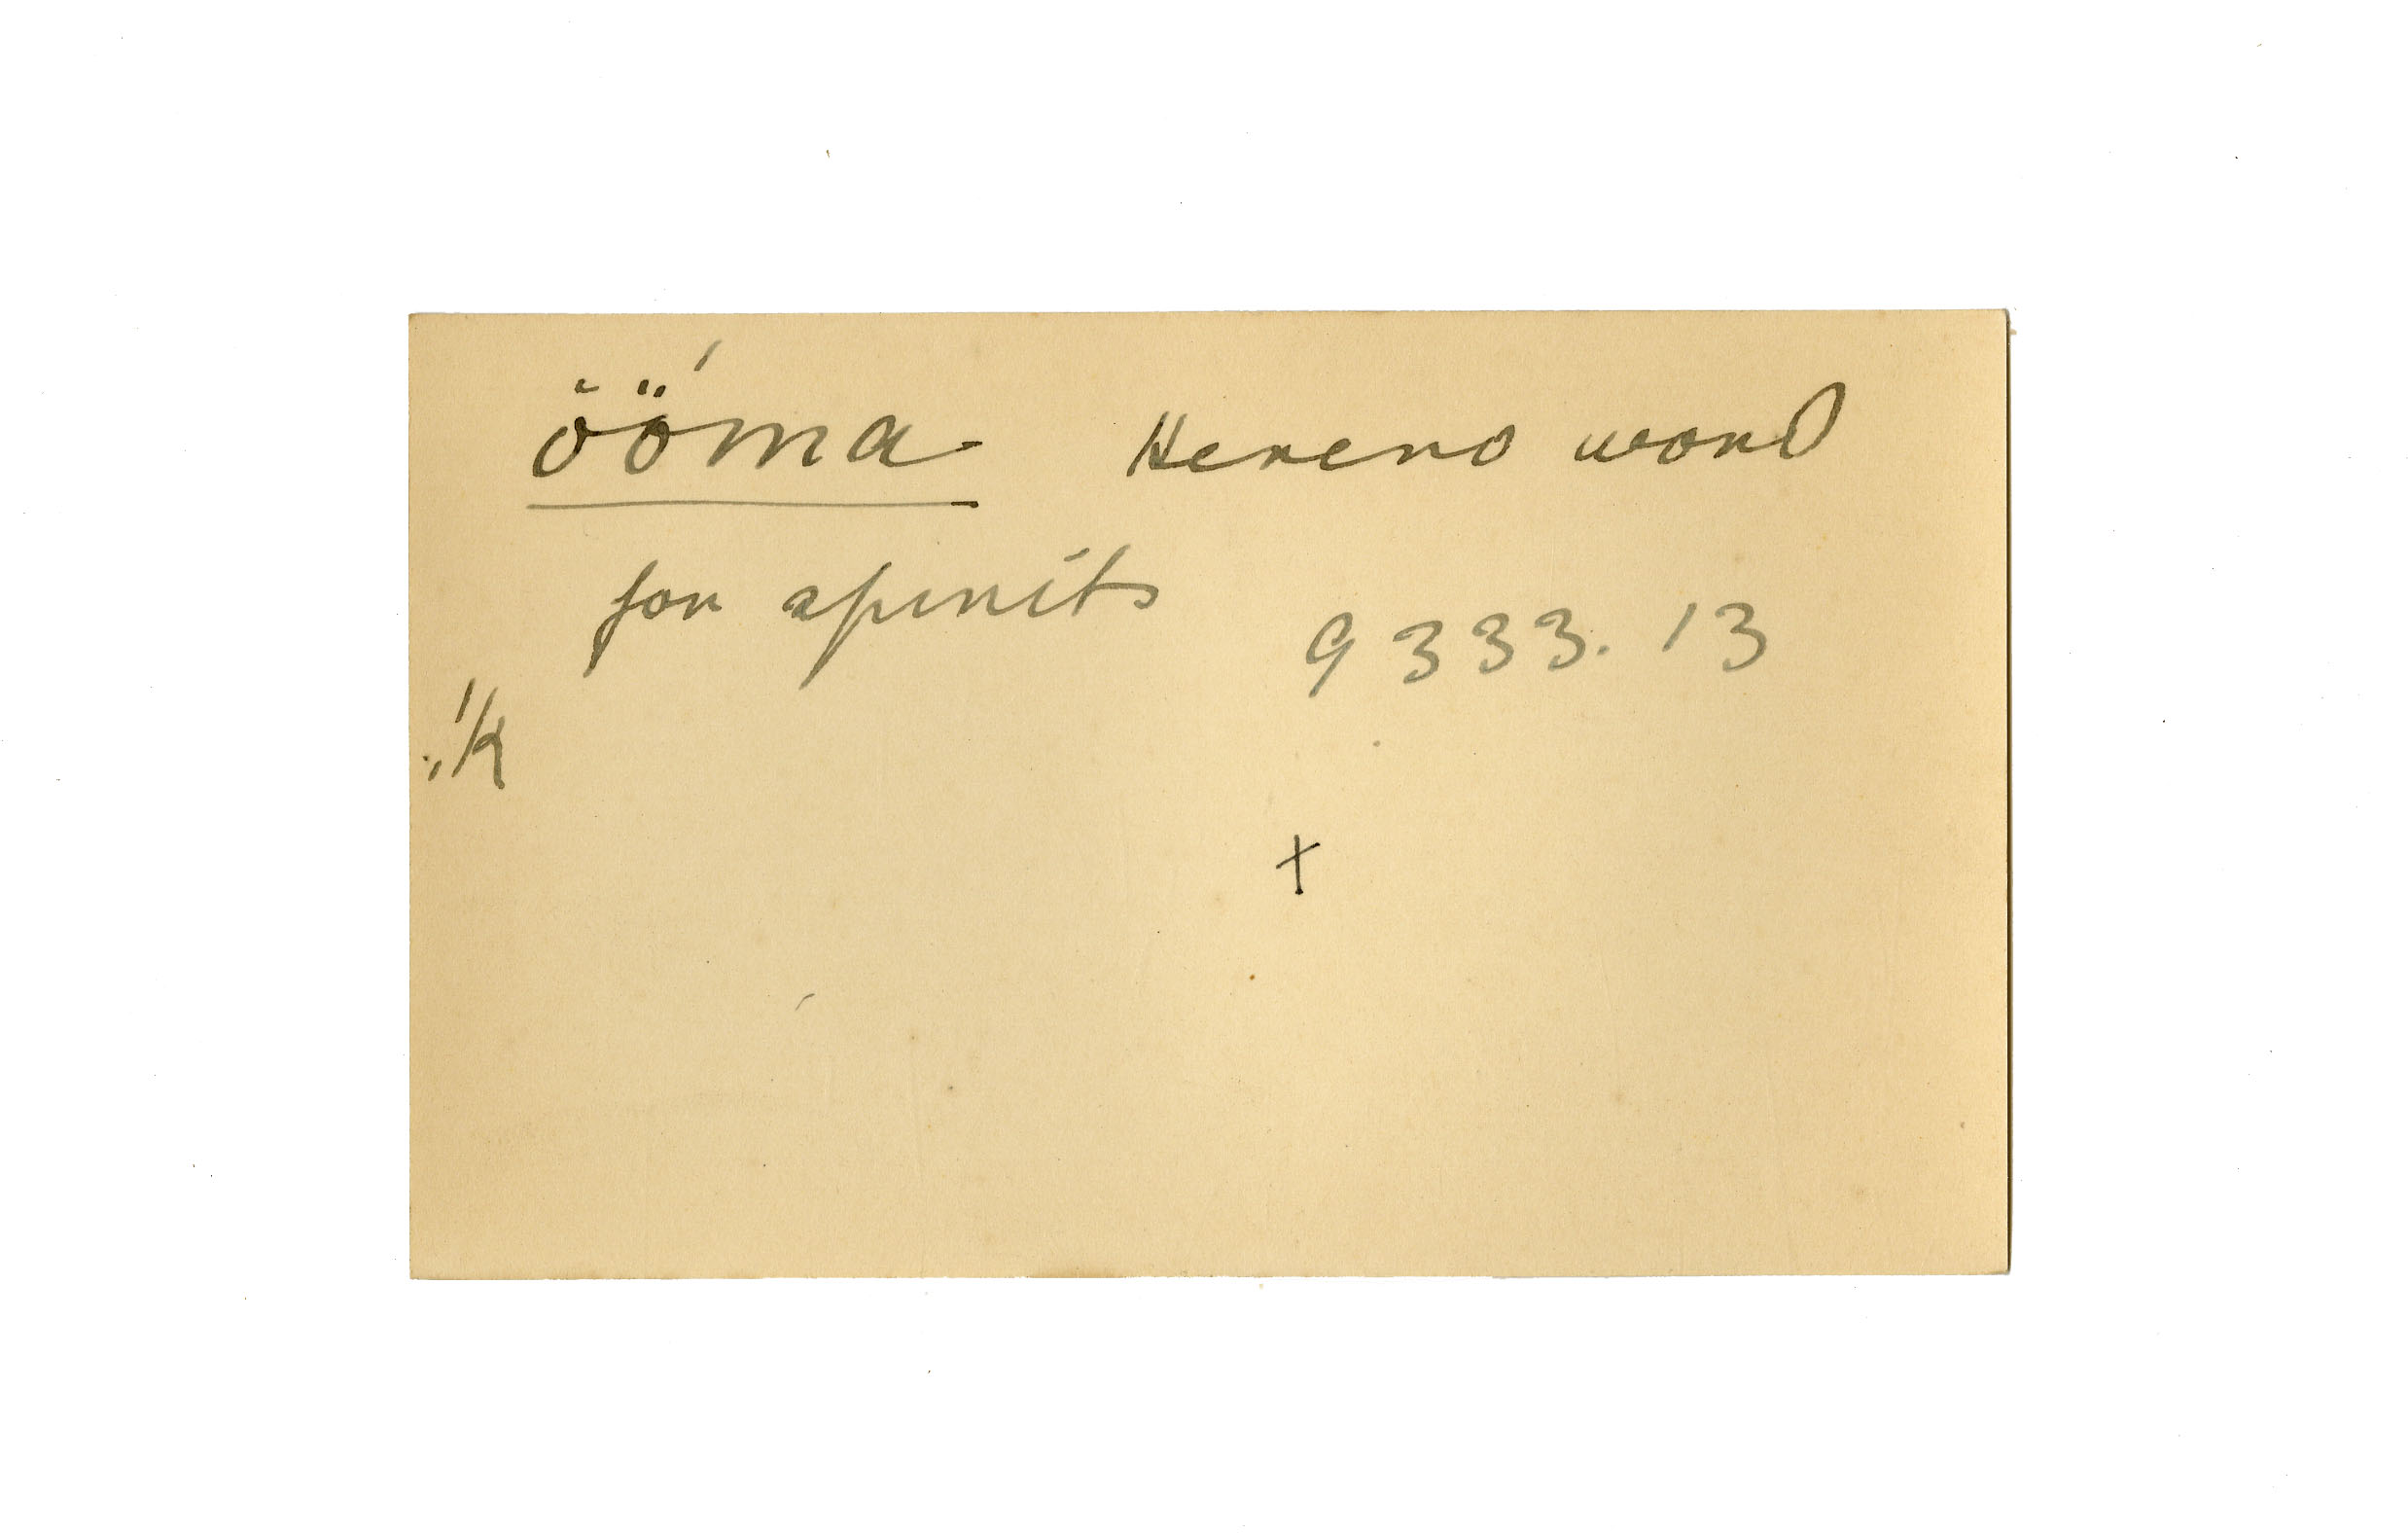 ŏö́ma Herero word
for spirits
9333. 13
!k
+